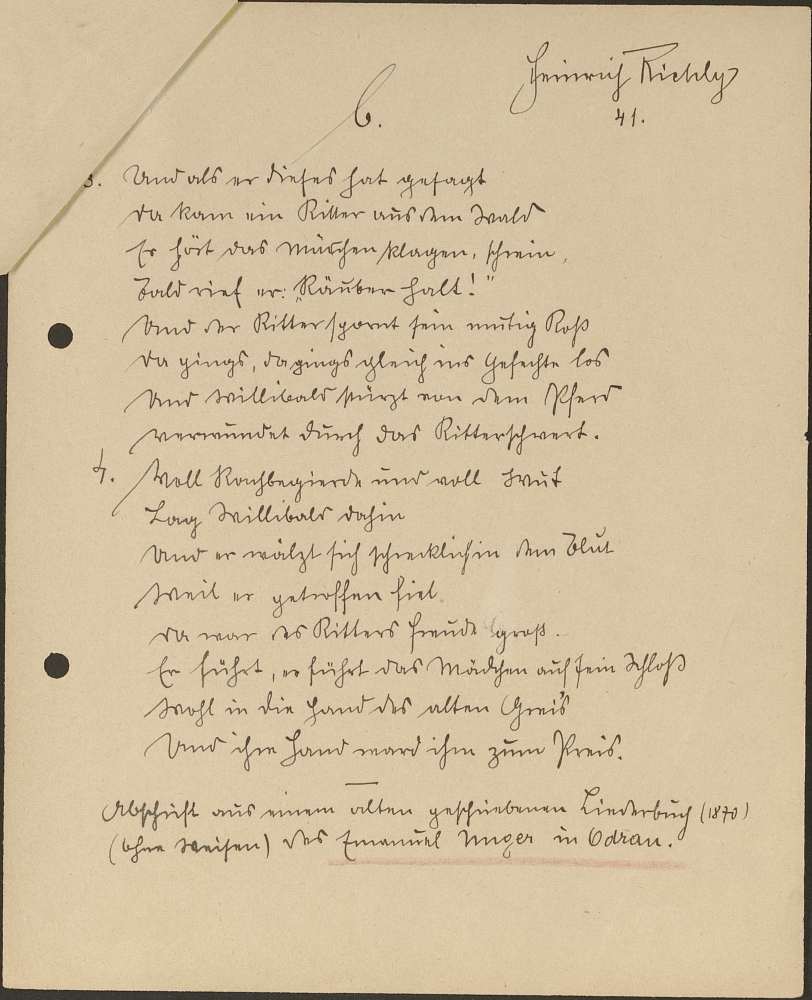 Heinrich Richly
6.
41.
3. Und als er dieses hat gesagt
Da kam ein Ritter aus dem Wald
Er hört das Mädchen klagen, schrein,
Bald rief er: "Räuber halt!"
Und der Ritter spornt sein mutig Roß
Da gings, da gings gleich ins Gefechte los
Und Willibald stürzt von dem Pferd
verwundet durch das Ritterschwert.
4. Voll Rachbegierde und voll Wut
Lag Willibald dahin
Und er wälzt sich schrecklich in dem Blut
Weil er getroffen fiel.
Da war des Ritters Freude groß.
Er führt, er führt das Mädchen auf sein Schloß
Wohl in die Hand des alten Greis
Und ihre Hand ward ihm zum Preis.
Abschrift aus einem alten geschriebenen Liederbuch (1870)
(ohne Weisen) des Emanuel Unger in Odrau.